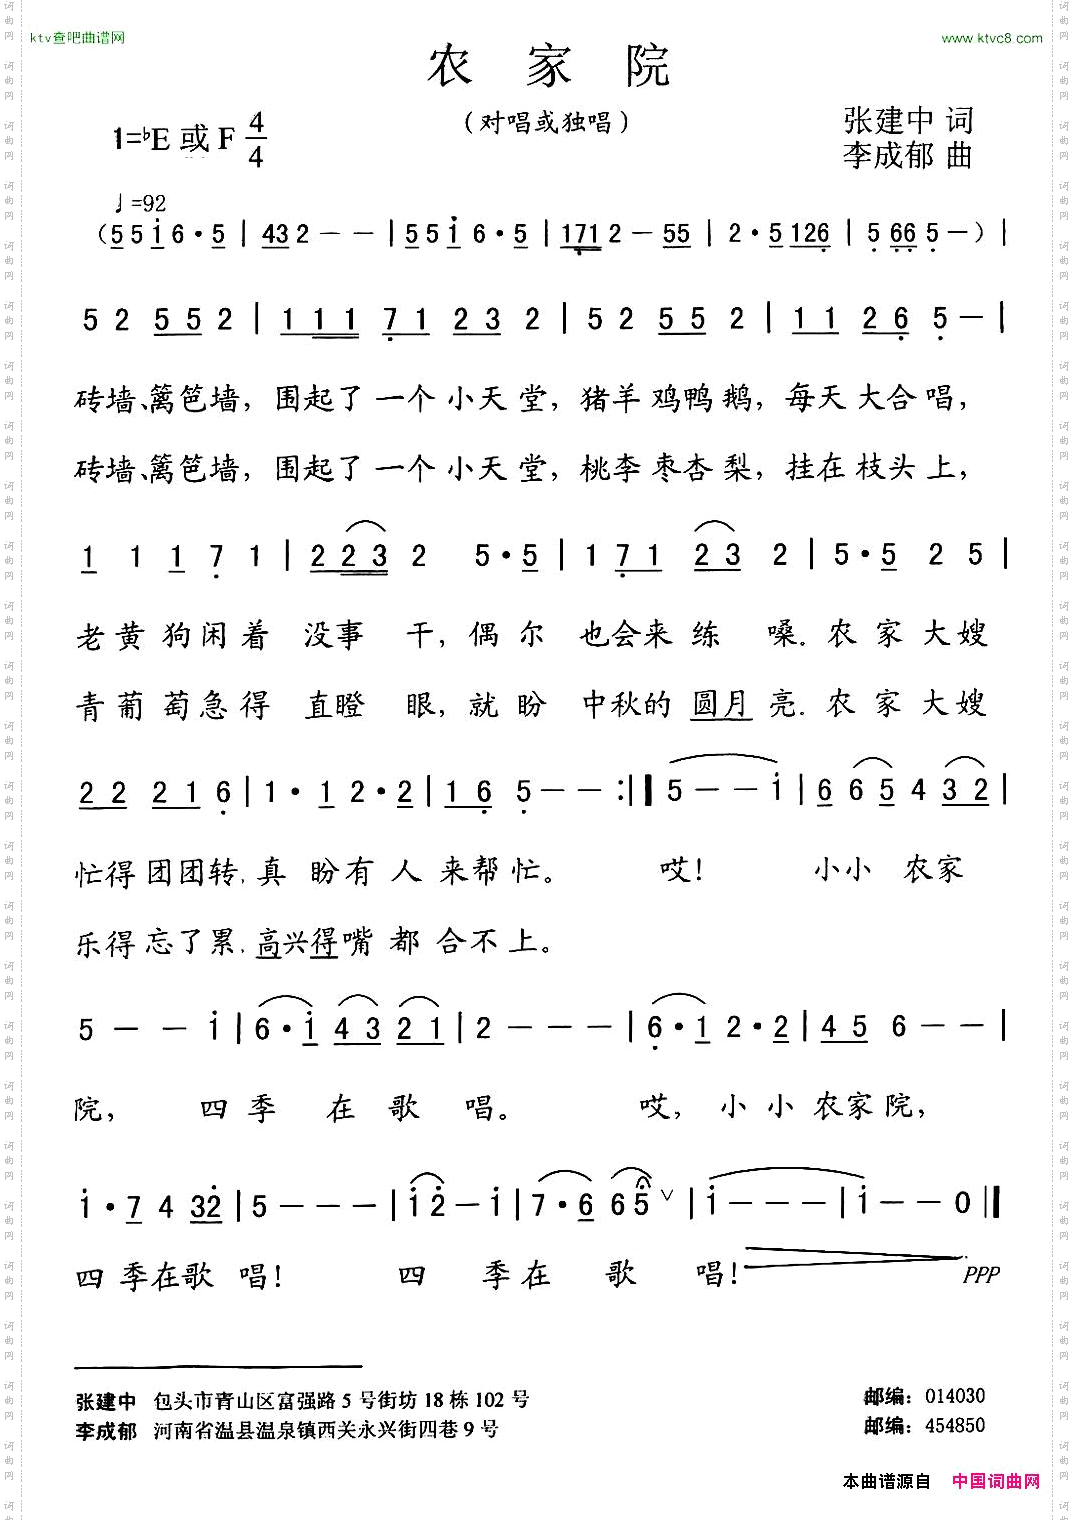 ktv查吧曲谱网
www.ktvc8.com
农 家 院
(对唱或独唱)
1=♭E 或 F 4/4
张建中 词
李成郁 曲
♩=92
(5 5 i 6 · 5 | 43 2 - - | 5 5 i 6 · 5 | 171 2 - 55 | 2 · 5 126 | 5 66 5 - ) |
5 2 5 5 2 | 1 1 1 7 1 2 3 2 | 5 2 5 5 2 | 1 1 2 6 5 - |
砖墙、篱笆墙, 围起了 一个 小天 堂, 猪羊 鸡鸭 鹅, 每天 大合 唱,
砖墙、篱笆墙, 围起了 一个 小天 堂, 桃李 枣杏 梨, 挂在 枝头 上,
1 1 1 7 1 | 2 2 3 2 5 · 5 | 1 7 1 2 3 2 | 5 · 5 2 5 |
老 黄 狗闲 着 没事 干, 偶 尔 也会来 练 嗓. 农 家 大嫂
青 葡 萄急 得 直瞪 眼, 就 盼 中秋的 圆月 亮. 农 家 大嫂
2 2 2 1 6 | 1 · 1 2 · 2 | 1 6 5 - - :‖ 5 - - i | 6 6 5 4 3 2 |
忙得 团团转, 真 盼有 人 来帮 忙。 哎! 小小 农家
乐得 忘了累, 高兴得嘴 都 合不 上。
5 - - i | 6 · i 4 3 2 1 | 2 - - - | 6 · 1 2 · 2 | 4 5 6 - - |
院, 四 季 在 歌 唱。 哎, 小 小 农家 院,
i · 7 4 32 | 5 - - - | i 2 - i | 7 · 6 6 5 ∨ | i - - - | i - - 0 ‖
四 季在歌 唱! 四 季在 歌 唱! PPP
张建中 包头市青山区富强路 5 号街坊 18 栋 102 号 邮编: 014030
李成郁 河南省温县温泉镇西关永兴街四巷 9 号 邮编: 454850
本曲谱源自 中国词曲网